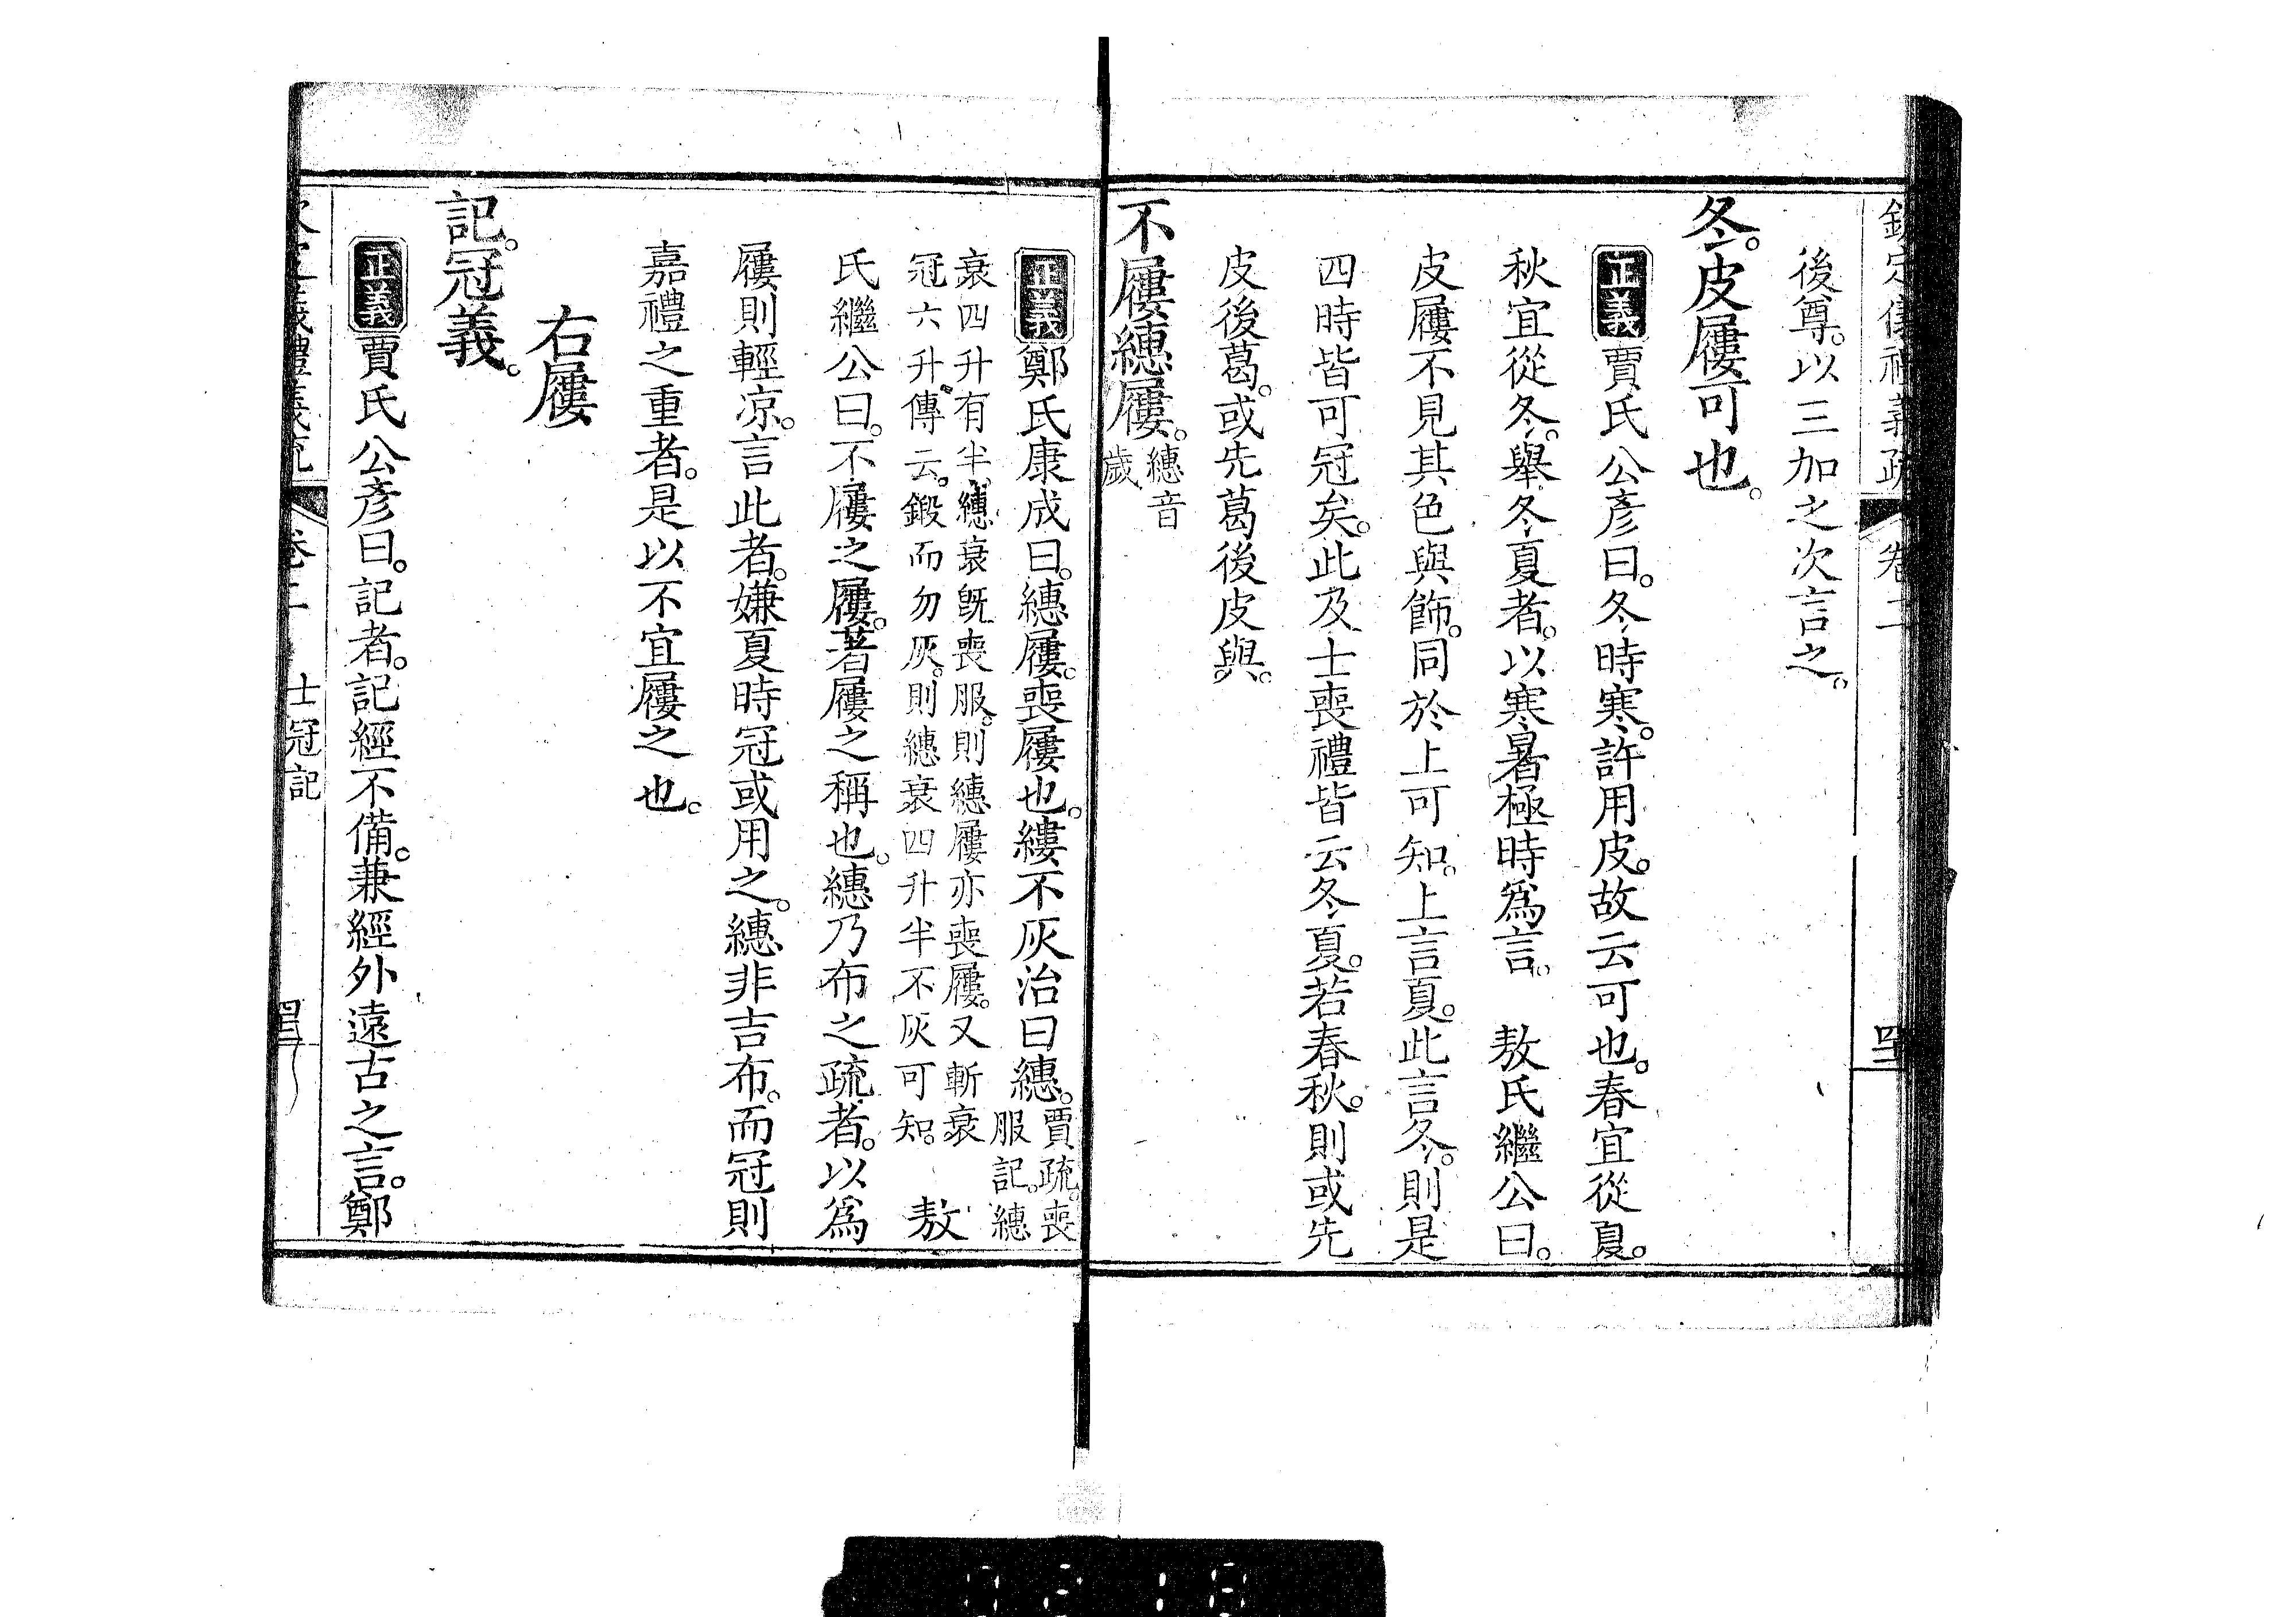 欽定儀禮義疏 卷二
後尊。以三加之次言之。
冬。皮屨可也。
正義 賈氏公彥曰。冬時寒。許用皮。故云可也。春宜從夏。
秋宜從冬。舉冬夏者。以寒暑極時爲言。 敖氏繼公曰。
皮屨不見其色與飾。同於上可知。上言夏。此言冬。則是
四時皆可冠矣。此及士喪禮皆云冬夏。若春秋。則或先
皮後葛。或先葛後皮與。
不屨繐屨。繐音
歲
正義 鄭氏康成曰。繐屨。喪屨也。縷不灰治曰繐。賈疏。喪
服記。繐
衰四升有半。繐衰既喪服。則繐屨亦喪屨。又斬衰
冠六升。傳云。鍛而勿灰。則繐衰四升半不灰可知。 敖
氏繼公曰。不屨之屨。著屨之稱也。繐乃布之疏者。以爲
屨則輕凉。言此者。嫌夏時冠或用之。繐非吉布。而冠則
嘉禮之重者。是以不宜屨之也。
右屨
記。冠義。
正義 賈氏公彥曰。記者。記經不備。兼經外遠古之言。鄭
欽定儀禮義疏 卷二 士冠記